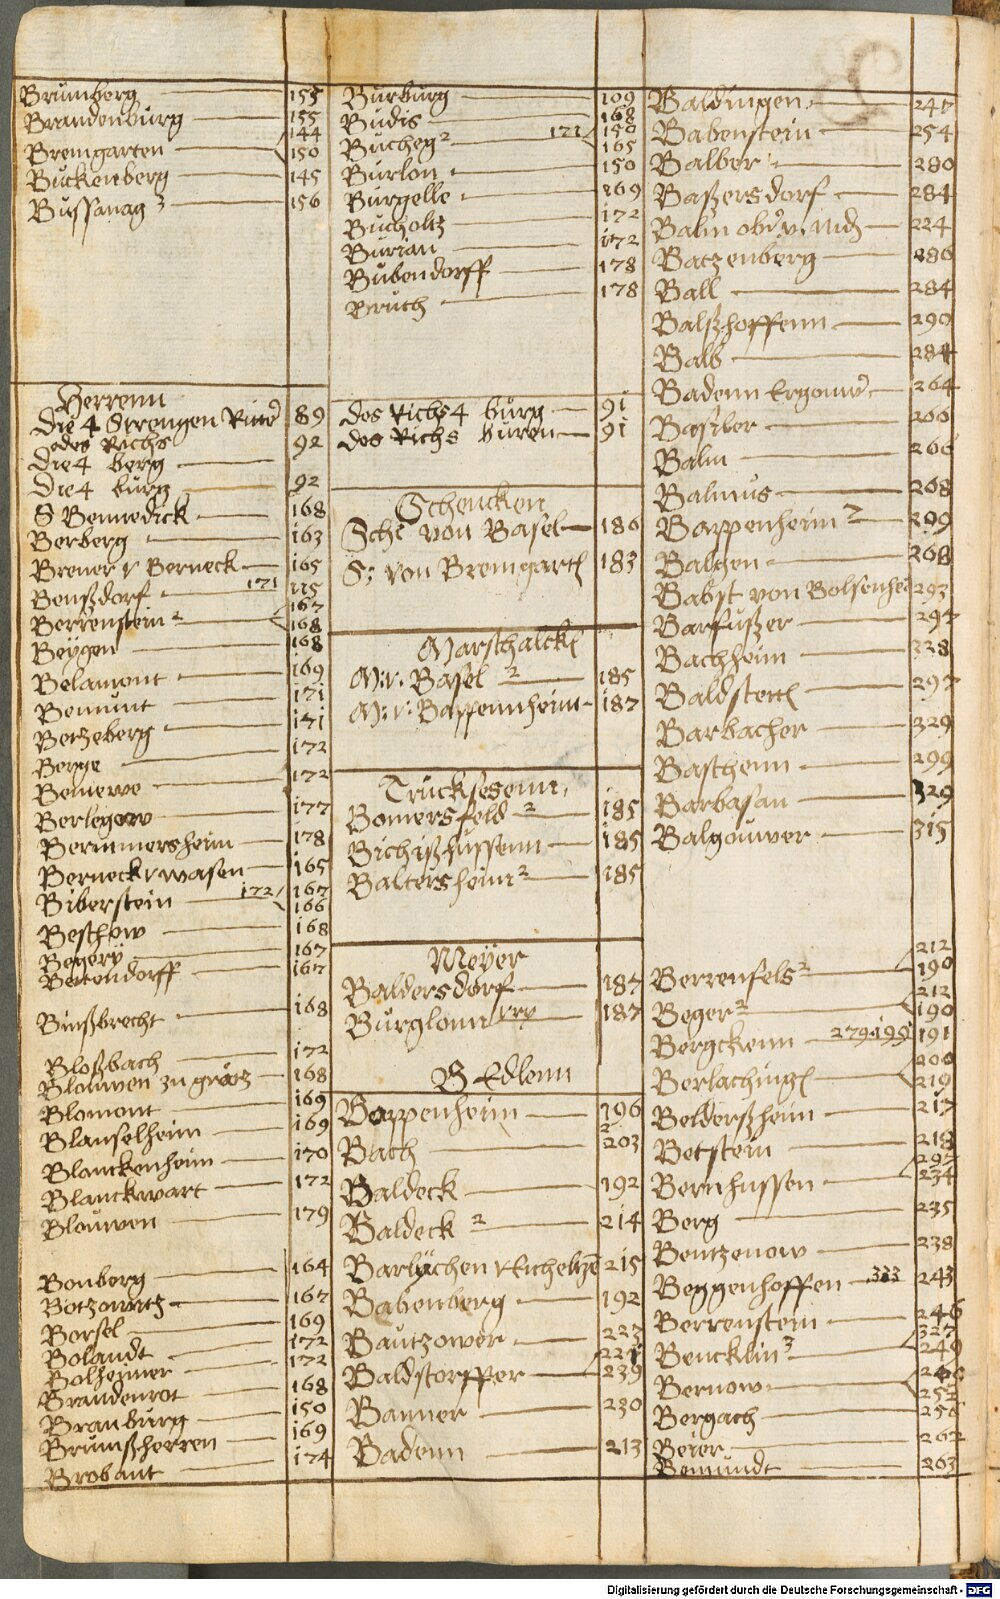 Brunberg 155
Brandenburg 155
Bremgarten 144 150
Buckenberg 145
Bussanag 3 156
Herrenn
Die 4 Strengen Ritter 89
des Richs
Die 4 berg 92
Die 4 burg 92
S Bennedick 168
Berberg 163
Brener v Berneck 165
Bonßdorf 171 175
Berrenstein 2 167 168
Beygen 168
Belamont 169
Bemunt 171
Betzeberg 171
Berge 172
Bemerwe 172
Berlegow 177
Berimmersheim 178
Berneck v wasen 165
Biberstein 172 167 166
Beschow 168
Begery 167
Bettendorff 167
Binßbrecht 168
Bloßbach 172
Blouwen zu grätz 168
Blomont 169
Blanselheim 169
Blanckenheim 170
Blanckwart 172
Blouwen 179
Bonberg 164
Botzowitz 167
Borsel 169
Bolandt 172
Bolheimer 172
Brandenrot 168
Branburg 150
Brumßherren 169
Brobant 174
Burburg 109
Budis 168
Bucheg 2 171 150 165
Burlon 150
Burgelle 169
Bucholtz 172
Burian 172
Bubendorff 178
Bruch 178
des Richs 4 burg 91
des Richs buren 91
Schencken
Sche von Basel 186
S: von Bremgarten 183
Marschalcken
M: v: Basel 2 185
M: v: Bappennheim 187
Trucksesenn
Bomersfeld 2 185
Bichißhussenn 185
Baltersheim 2 185
Meyer
Baldersdorf 187
Burglonn 187
B Edlenn
Bappenheim 196
Bach 203
Baldeck 192
Baldeck 2 214
Barlychen v Richeltze 215
Babenberg 192
Bautzower 223
Baldstorffer 221 239
Banner 230
Badenn 213
Baldingen 247
Babenstein 254
Balber 280
Baßersdorf 284
Balm ober v. nid 224
Batzenberg 286
Ball 284
Balßhoffenn 290
Balb 284
Badenn Ergouw 264
Basiler 200
Balm 266
Balmus 268
Bappenheim 2 299
Balgen 268
Babst von Bolsenheim 293
Barfußer 297
Bachheim 328
Baldstett 297
Barbacher 329
Baschenn 299
Barbasan 329
Balgouwer 315
Berrenfels 2 212 190
Beger 2 212 190
Bergckenn 279. 199 191
Berlachingen 200 219
Belderßheim 217
Betstein 218
Bernhussen 297 234
Berg 235
Bentzenow 238
Beggenhoffen 333 243
Berrenstein 246
Bencklin 3 327 249
Bernow 252
Bergach 256
Beier 262
Bemundt 263
Digitalisierung gefördert durch die Deutsche Forschungsgemeinschaft - DFG